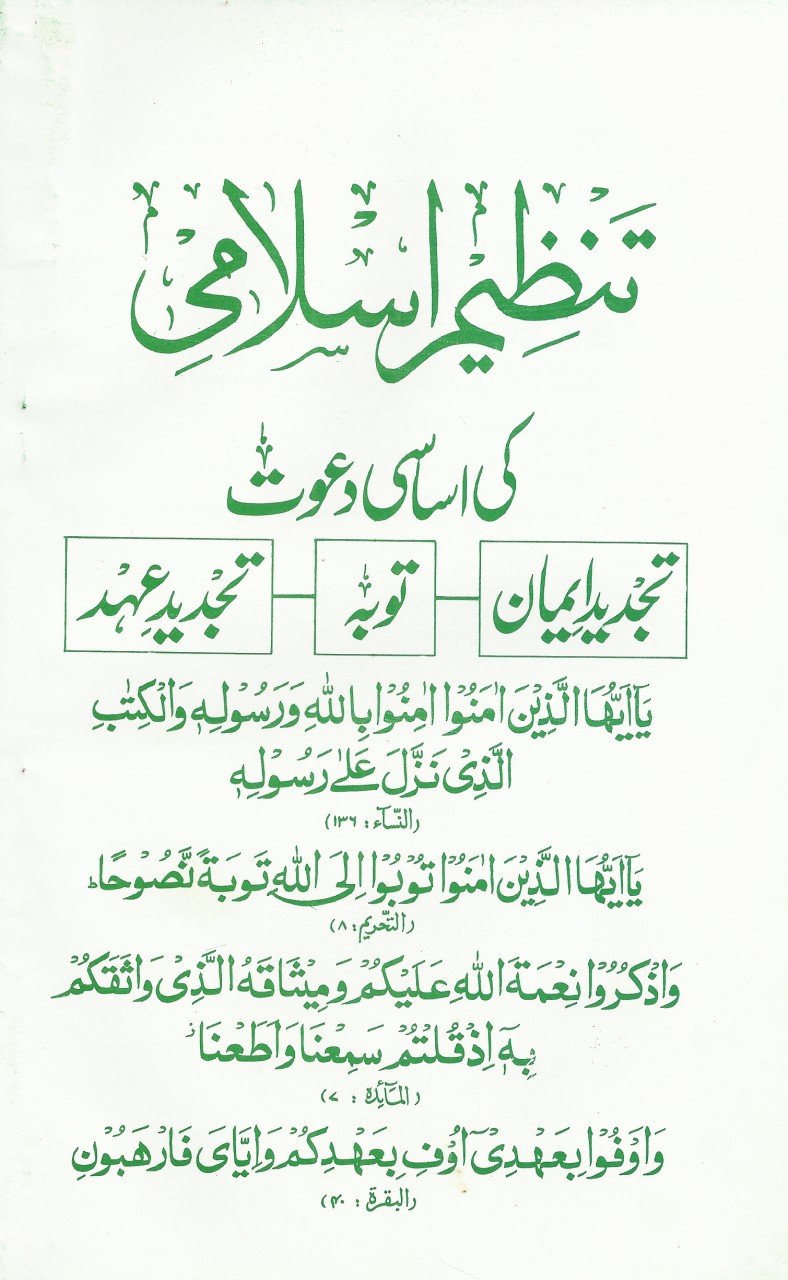 تنظیمِ اسلامی
کی اساسی دعوت
تجدیدِ ایمان
توبہ
تجدیدِ عہد
يٰٓاَيُّهَا الَّذِيْنَ اٰمَنُوْٓا اٰمِنُوْا بِاللّٰهِ وَرَسُوْلِهٖ وَالْكِتٰبِ
الَّذِيْ نَزَّلَ عَلٰى رَسُوْلِهٖ
(النّسآء : ۱۳۶)
يٰٓاَيُّهَا الَّذِيْنَ اٰمَنُوْا تُوْبُوْٓا اِلَى اللّٰهِ تَوْبَةً نَّصُوْحًا ط
(التّحریم : ۸)
وَاذْكُرُوْا نِعْمَةَ اللّٰهِ عَلَيْكُمْ وَمِيْثَاقَهُ الَّذِيْ وَاثَقَكُمْ
بِهٖٓ اِذْ قُلْتُمْ سَمِعْنَا وَاَطَعْنَا ز
(المآئدة : ۷)
وَاَوْفُوْا بِعَهْدِيْٓ اُوْفِ بِعَهْدِكُمْ وَاِيَّايَ فَارْهَبُوْنِ
(البقرة : ۴۰)